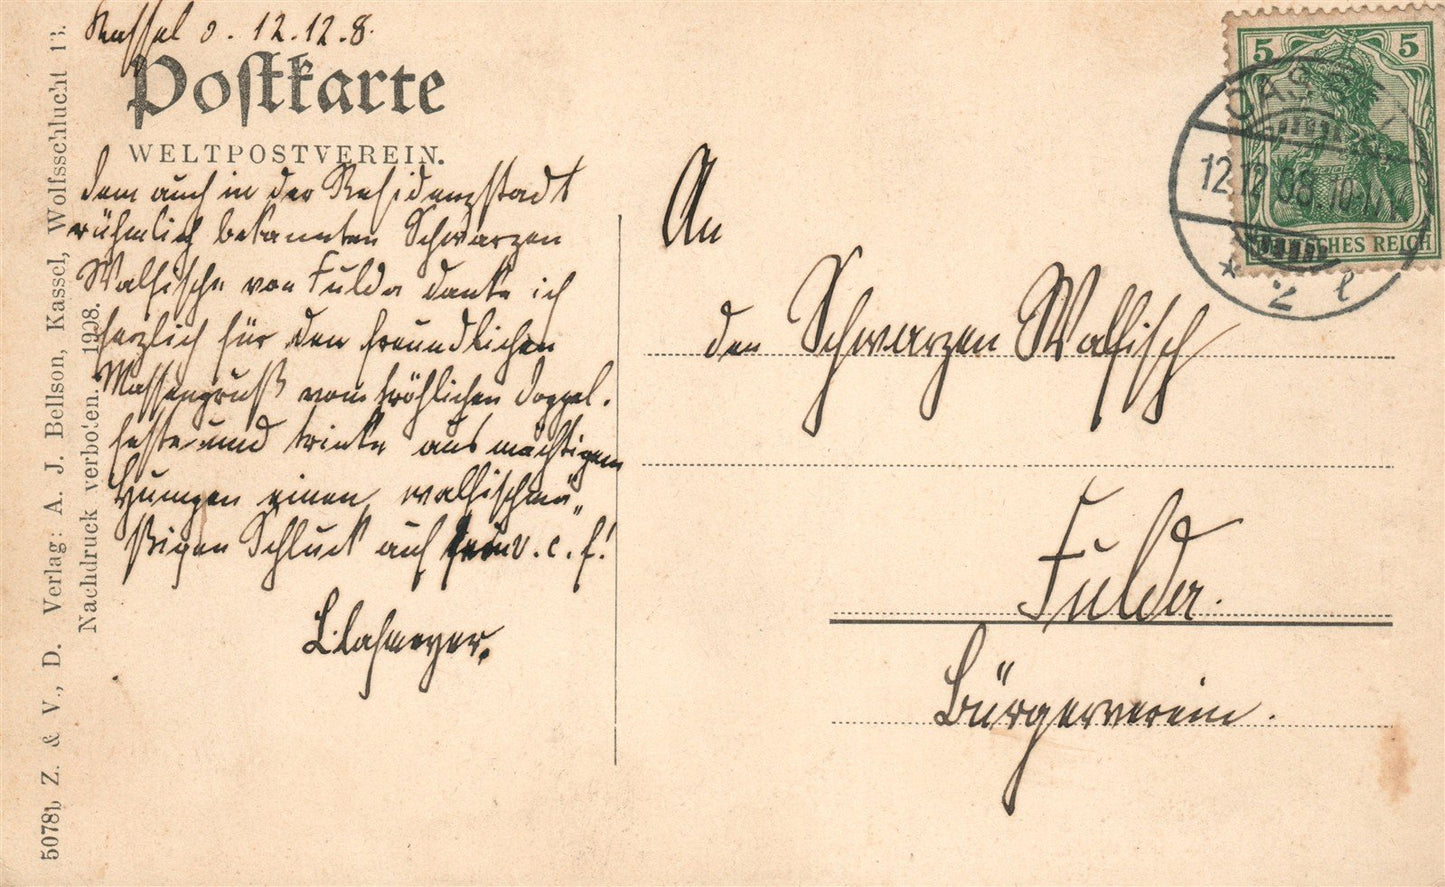 Kassel d. 12.12.8.
Postkarte
WELTPOSTVEREIN.
Dem auch in der Residenzstadt
rühmlich bekannten Schwarzen
Walfische von Fulda danke ich
herzlich für den freundlichen
Massengruß vom fröhlichen Doppel-
feste und trinke aus mächtigem
Humpen einen walfischmä-
ßigen Schluck auf v. c. f!
An
den Schwarzen Walfisch
Fulda.
Bürgerverein.
5 5
DEUTSCHES REICH
CASSEL
12.12.08.10-11
* 2 l
5078b Z. & V., D. Verlag: A. J. Bellson, Kassel, Wolfsschlucht 13.
Nachdruck verboten. 1908.